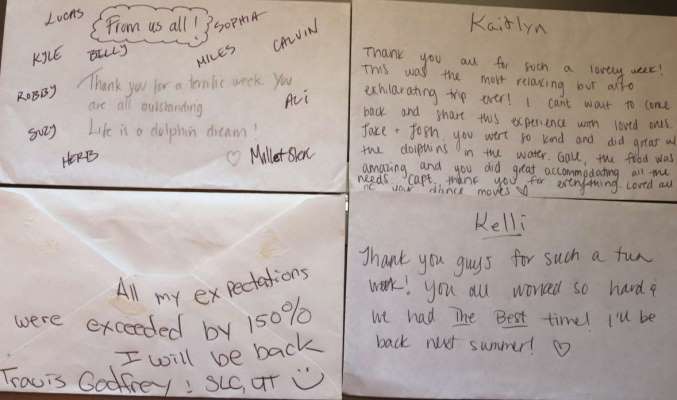 From us all!
LUCAS
SOPHIA
CALVIN
KYLE
BILLY
MILES
ROBBY
Thank you for a terrific week. You
are all outstanding
ALI
SUZY
Life is a dolphin dream!
HERB
♡
Kaitlyn
Thank you all for such a lovely week!
This was the most relaxing but also
exhilarating trip ever! I cant wait to come
back and share this experience with loved ones.
Jake + Josh, you were so kind and did great w/
the dolphins in the water. Gale, the food was
amazing and you did great accommodating all the
needs. Capt, thank you for everything. Loved all
of your dance moves ♡
All my expectations
were exceeded by 150%
I will be back
Travis Godfrey! SLC, UT
Kelli
Thank you guys for such a fun
week! You all worked so hard &
we had The Best time! I'll be
back next summer! ♡